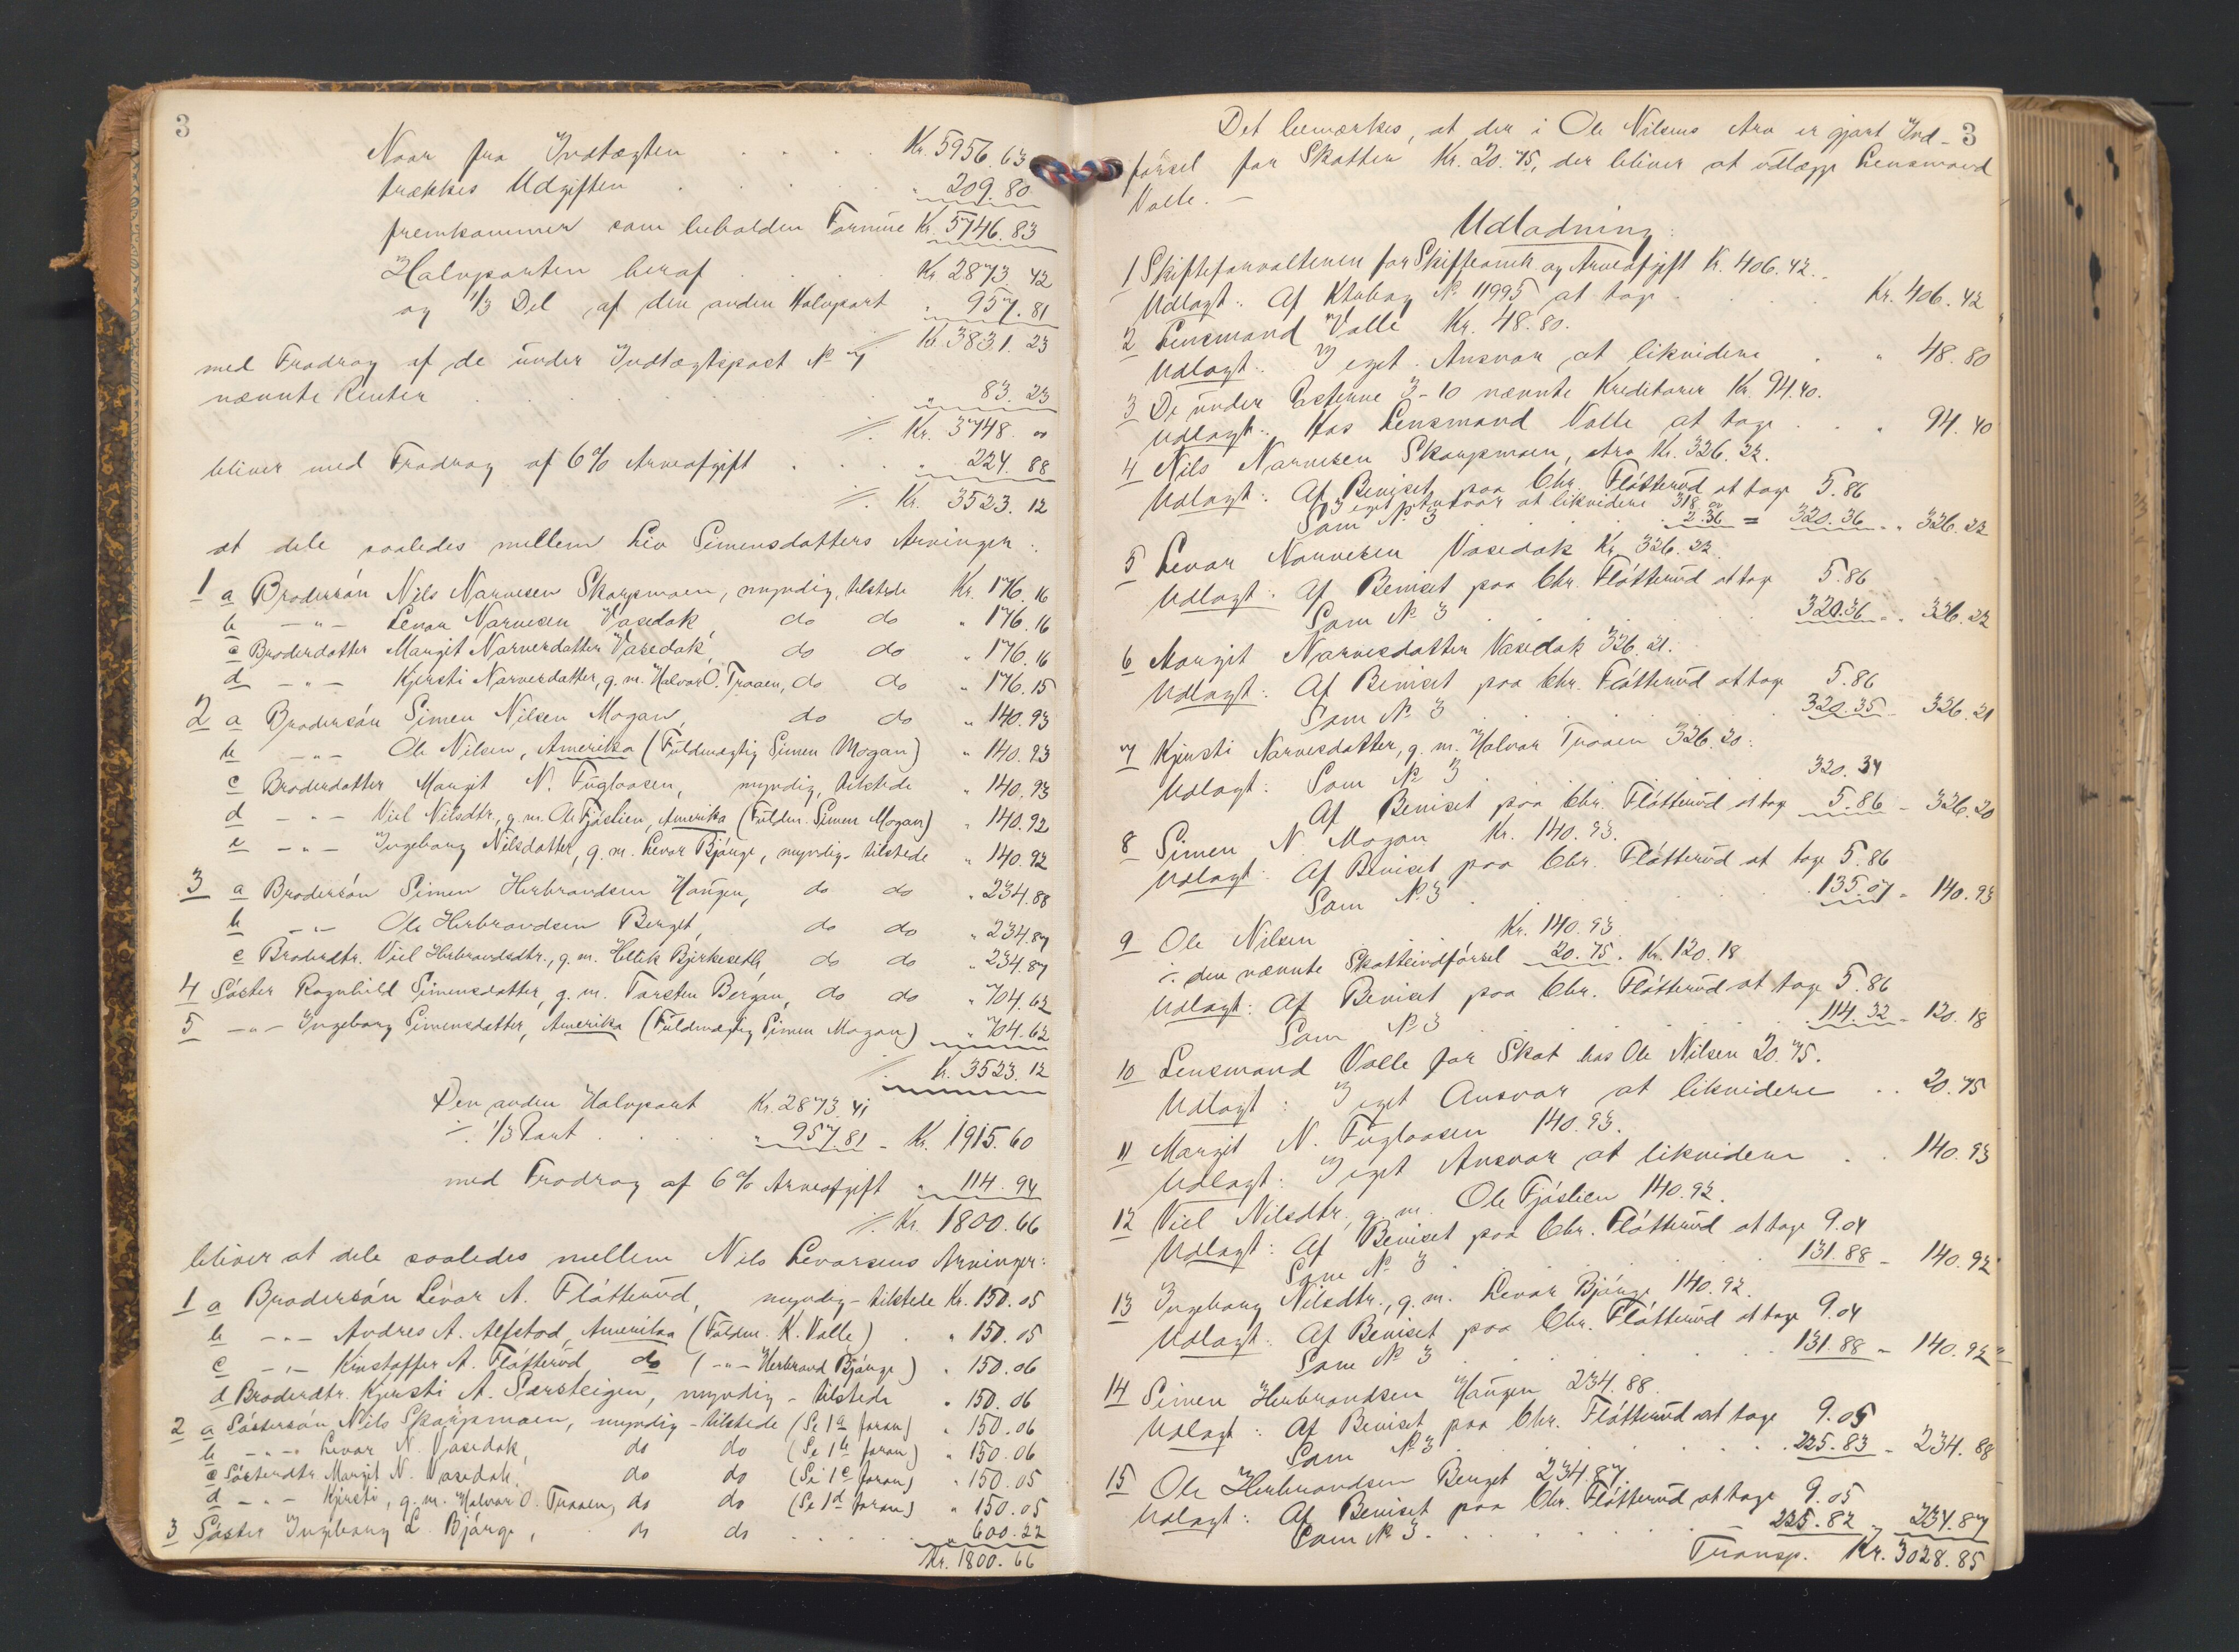 3
Naar fra Indtægten . . . . Kr. 5956.63
trækkes Udgiften . . . . . " 209.80
fremkommer som beholden Formue Kr. 5746.83
Halvparten heraf . . . . Kr. 2873.42
og 1/3 Del af den anden Halvpart " 957.81
Kr. 3831.23
med Fradrag af de under Indtægtspost No 7
nævnte Renter . . . . . . " 83.23
Kr. 3748. "
bliver med Fradrag af 6% Arveafgift . . . . " 224.88
Kr. 3523.12
at dele saaledes mellem Liv Simensdatters Arvinger:
1 a Brodersön Nils Narvesen Skarpmoen, myndig, tilstede Kr. 176.16
b - " - Levor Narvesen Vasedok, do do " 176.16
c Broderdatter Margit Narvesdatter Vasedok, do do " 176.16
d - " - Kjersti Narvesdatter, g. m. Halvor O. Traaen, do do " 176.15
2 a Brodersön Simen Nilsen Mogan, do do " 140.93
b - " - Ole Nilsen, Amerika (Fuldmægtig Simen Mogan) " 140.93
c Broderdatter Margit N. Fugleaasen, myndig, tilstede " 140.93
d - " - Viel Nilsdtr., g. m. Ole Fjöslien, Amerika (Fuldm. Simen Mogan) " 140.92
e - " - Ingeborg Nilsdatter, g. m. Levor Bjönge, myndig - tilstede " 140.92
3 a Brodersön Simen Herbrandsen Haugen, do do " 234.88
b - " - Ole Herbrandsen Berget, do do " 234.87
c Broderdtr. Viel Herbrandsdtr., g. m. Hellik Bjerkeseth, do do " 234.87
4 Söster Ragnhild Simensdatter, g. m. Torsten Bergan, do do " 704.62
5 - " - Ingeborg Simensdatter, Amerika (Fuldmægtig Simen Mogan) " 704.62
Kr. 3523.12
Den anden Halvpart Kr. 2873.41
÷ 1/3 Part . . . . " 957.81 - Kr. 1915.60
med Fradrag af 6% Arveafgift " 114.94
Kr. 1800.66
bliver at dele saaledes mellem Nils Levorsens Arvinger:
1 a Brodersön Levor A. Flötterud, myndig - tilstede Kr. 150.05
b - " - Andres A. Alfstad, Amerika (Fuldm. K. Valle) . " 150.05
c - " - Kristoffer A. Flötterud, do (- " - Herbrand Bjönge) " 150.06
d Broderdtr. Kjersti A. Sersteigen, myndig - tilstede " 150.06
2 a Söstersön Nils Skarpmoen, myndig - tilstede (Se 1 a foran) " 150.06
b - " - Levor N. Vasedok, do do (Se 1 b foran) " 150.06
c Sösterdtr. Margit N. Vasedok, do do (Se 1 c foran) " 150.05
d - " - Kjersti, g. m. Halvor O. Traaen, do do (Se 1 d foran) " 150.05
3 Söster Ingeborg L. Bjönge, do do . . . . " 600.22
Kr. 1800.66
3
Det bemærkes, at der i Ole Nilsens Arv er gjort Ind-
försel for Skatter Kr. 20.75, der bliver at udlægge Lensmand
Valle. -
Udlodning:
1 Skifteforvalteren for Skifteomk. og Arveafgift Kr. 406.42.
Udlagt: Af Ktobog No 11995 at tage . . . . Kr. 406.42
2 Lensmand Valle Kr. 48.80.
Udlagt: I eget Ansvar at likvidere . . " 48.80
3 De under Posterne 3-10 nævnte Kreditorer Kr. 94.40.
Udlagt: Hos Lensmand Valle at tage . . . " 94.40
4 Nils Narvesen Skarpmoen, Arv Kr. 326.22.
Udlagt: Af Beviset paa Chr. Flötterud at tage 5.86
I eget Ansvar at likvidere 318 "
Som No 3 . . . . 2.36 = 320.36 - " 326.22
5 Levor Narvesen Vasedok Kr. 326.22.
Udlagt: Af Beviset paa Chr. Flötterud at tage 5.86
Som No 3 . . . . 320.36 - " 326.22
6 Margit Narvesdatter Vasedok 326.21.
Udlagt: Af Beviset paa Chr. Flötterud at tage 5.86
Som No 3 . . . . 320.35 - 326.21
7 Kjersti Narvesdatter, g. m. Halvor Traaen 326.20.
Udlagt: Som No 3 320.34
Af Beviset paa Chr. Flötterud at tage 5.86 - 326.20
8 Simen N. Mogan Kr. 140.93.
Udlagt: Af Beviset paa Chr. Flötterud at tage 5.86
Som No 3 . . . . 135.07 - 140.93
9 Ole Nilsen Kr. 140.93
÷ den nævnte Skatteindförsel 20.75. Kr. 120.18
Udlagt: Af Beviset paa Chr. Flötterud at tage 5.86
Som No 3 114.32 - 120.18
10 Lensmand Valle for Skat hos Ole Nilsen 20.75.
Udlagt: I eget Ansvar at likvidere . . 20.75
11 Margit N. Fugleaasen 140.93.
Udlagt: I eget Ansvar at likvidere . . 140.93
12 Viel Nilsdtr., g. m. Ole Fjöslien 140.92.
Udlagt: Af Beviset paa Chr. Flötterud at tage 9.04
Som No 3 . . . . 131.88 - 140.92
13 Ingeborg Nilsdtr., g. m. Levor Bjönge 140.92.
Udlagt: Af Beviset paa Chr. Flötterud at tage 9.04
Som No 3 . . . . 131.88 - 140.92
14 Simen Herbrandsen Haugen 234.88.
Udlagt: Af Beviset paa Chr. Flötterud at tage 9.05
Som No 3 . . . . 225.83 - 234.88
15 Ole Herbrandsen Berget 234.87.
Udlagt: Af Beviset paa Chr. Flötterud at tage 9.05
Som No 3 . . . . 225.82 " 234.87
Transp. Kr. 3028.85